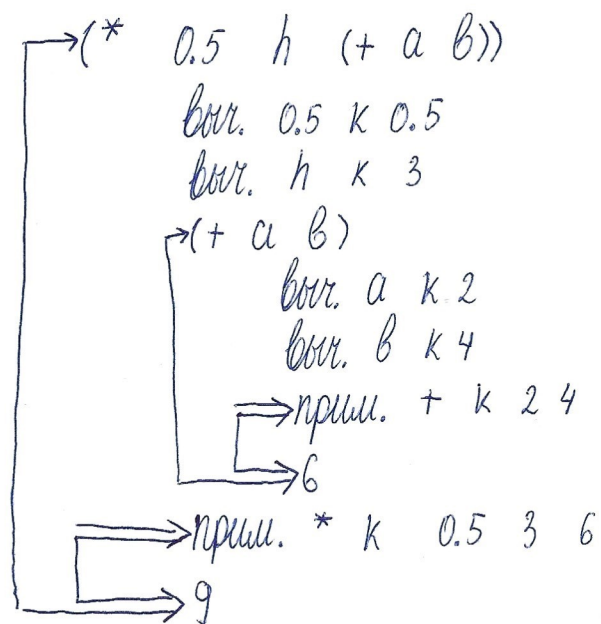 (* 0.5 h (+ a в))
выч. 0.5 к 0.5
выч. h к 3
(+ a в)
выч. a к 2
выч. в к 4
прим. + к 2 4
6
прим. * к 0.5 3 6
9